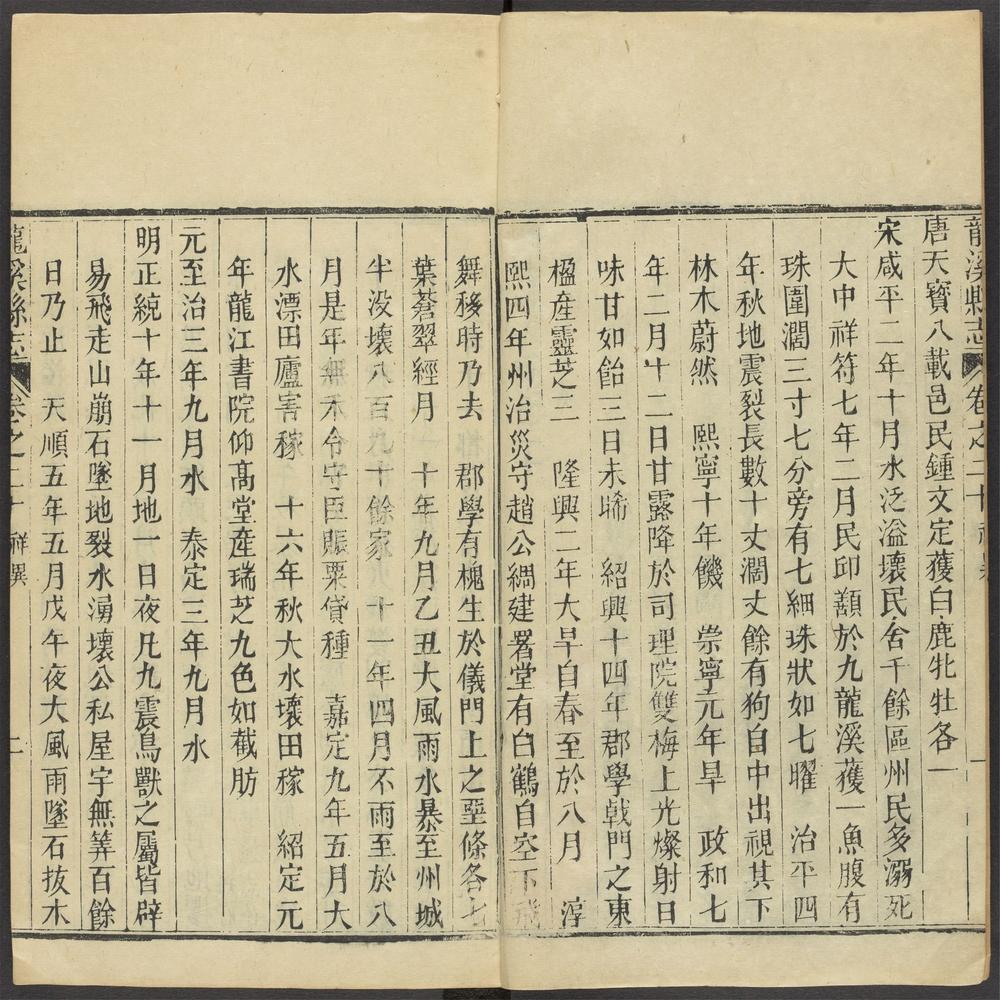 龍溪縣志 卷之二十 祥異 一
唐天寳八載邑民鍾文定獲白鹿牝牡各一
宋咸平二年十月水泛溢壞民舍千餘區州民多溺死
大中祥符七年二月民邱顥於九龍溪獲一魚腹有
珠圍濶三寸七分旁有七細珠狀如七曜 治平四
年秋地震裂長數十丈濶丈餘有狗自中出視其下
林木蔚然 熙寧十年饑 崇寧元年旱 政和七
年二月十二日甘露降於司理院雙梅上光燦射日
味甘如飴三日未晞 紹興十四年郡學戟門之東
楹産靈芝三 隆興二年大旱自春至於八月 淳
熙四年州治災守趙公綢建署堂有白鶴自空下飛
舞移時乃去 郡學有槐生於儀門上之堊條各七
葉蒼翠經月 十年九月乙丑大風雨水暴至州城
半没壞八百九十餘家 十一年四月不雨至於八
月是年無禾令守臣賑粟貸種 嘉定九年五月大
水漂田廬害稼 十六年秋大水壞田稼 紹定元
年龍江書院仰髙堂産瑞芝九色如截肪
元至治三年九月水 泰定三年九月水
明正統十年十一月地一日夜凡九震鳥獸之屬皆辟
易飛走山崩石墜地裂水湧壞公私屋宇無筭百餘
日乃止 天順五年五月戊午夜大風雨墜石拔木
龍溪縣志 卷之二十 祥異 二